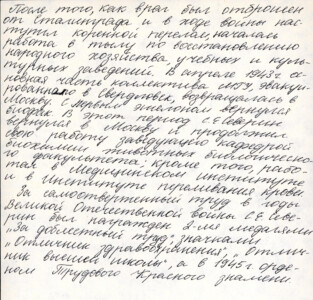 После того, как враг был отброшен
от Сталинграда и в ходе войны нас-
тупил коренной перелом, началась
работа в тылу по восстановлению
народного хозяйства, учебных и куль-
турных заведений. В апреле 1943 г. ос-
новная часть коллектива МГУ, эвакуи-
рованного в Свердловск, возвращалась в
Москву. С первым эшелоном вернулся
В этот период С.Е. Северин
вернулся в Москву и продолжил
свою работу заведующего кафедрой
биохимии животных биологическо-
го факультета. Кроме того, рабо-
тал в Медицинском институте
и в Институте переливания крови.
За самоотверженный труд в годы
Великой Отечественной войны С.Е. Севе-
рин был награжден 2-мя медалями
"За доблестный труд", значками
"Отличник здравоохранения", "Отлич-
ник высшей школы", а в 1945 г. орде-
ном Трудового Красного знамени